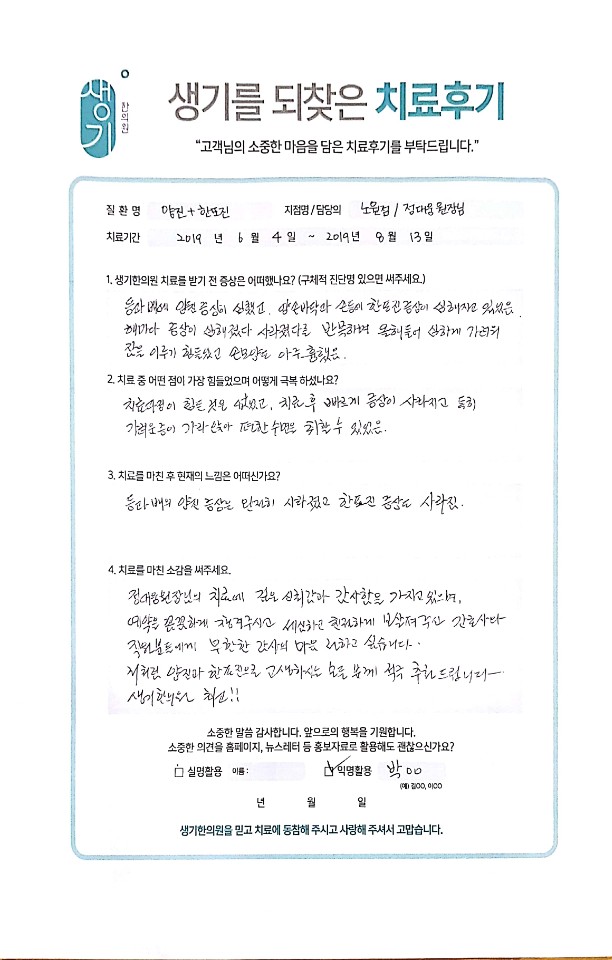 생기
한의원
생기를 되찾은 치료후기
"고객님의 소중한 마음을 담은 치료후기를 부탁드립니다."
질 환 명 양진 + 한포진 지점명 / 담당의 노원점 / 정대웅 원장님
치료기간 2019 년 6 월 4 일 ~ 2019년 8 월 13 일
1. 생기한의원 치료를 받기 전 증상은 어떠했나요? (구체적 진단명 있으면 써주세요.)
등과 배에 양진 증상이 심했고, 양손바닥과 손등에 한포진 증상이 심해지고 있었음.
해마다 증상이 심해졌다 사라졌다를 반복하며 올해들어 심하게 가려워
잠을 이루기 힘들었고 손모양도 아주 흉했음.
2. 치료 중 어떤 점이 가장 힘들었으며 어떻게 극복 하셨나요?
치료과정이 힘든 것은 없었고, 치료 후 빠르게 증상이 사라지고 특히
가려움증이 가라앉아 편한 수면을 취할 수 있었음.
3. 치료를 마친 후 현재의 느낌은 어떠신가요?
등과 배의 양진 증상은 완전히 사라졌고 한포진 증상도 사라짐.
4. 치료를 마친 소감을 써주세요.
정대웅원장님의 치료에 깊은 신뢰감과 감사함을 가지고 있으며,
예약을 꼼꼼하게 챙겨주시고 세심하고 친절하게 보살펴주신 간호사나
직원분들에게 무한한 감사의 마음 전하고 싶습니다.
저처럼 양진과 한포진으로 고생하시는 모든 분께 적극 추천드립니다~
생기한의원 최고!!
소중한 말씀 감사합니다. 앞으로의 행복을 기원합니다.
소중한 의견을 홈페이지, 뉴스레터 등 홍보자료로 활용해도 괜찮으신가요?
실명활용 이름 : 익명활용 박ㅇㅇ
(예) 김OO, 이OO
년 월 일
생기한의원을 믿고 치료에 동참해 주시고 사랑해 주셔서 고맙습니다.